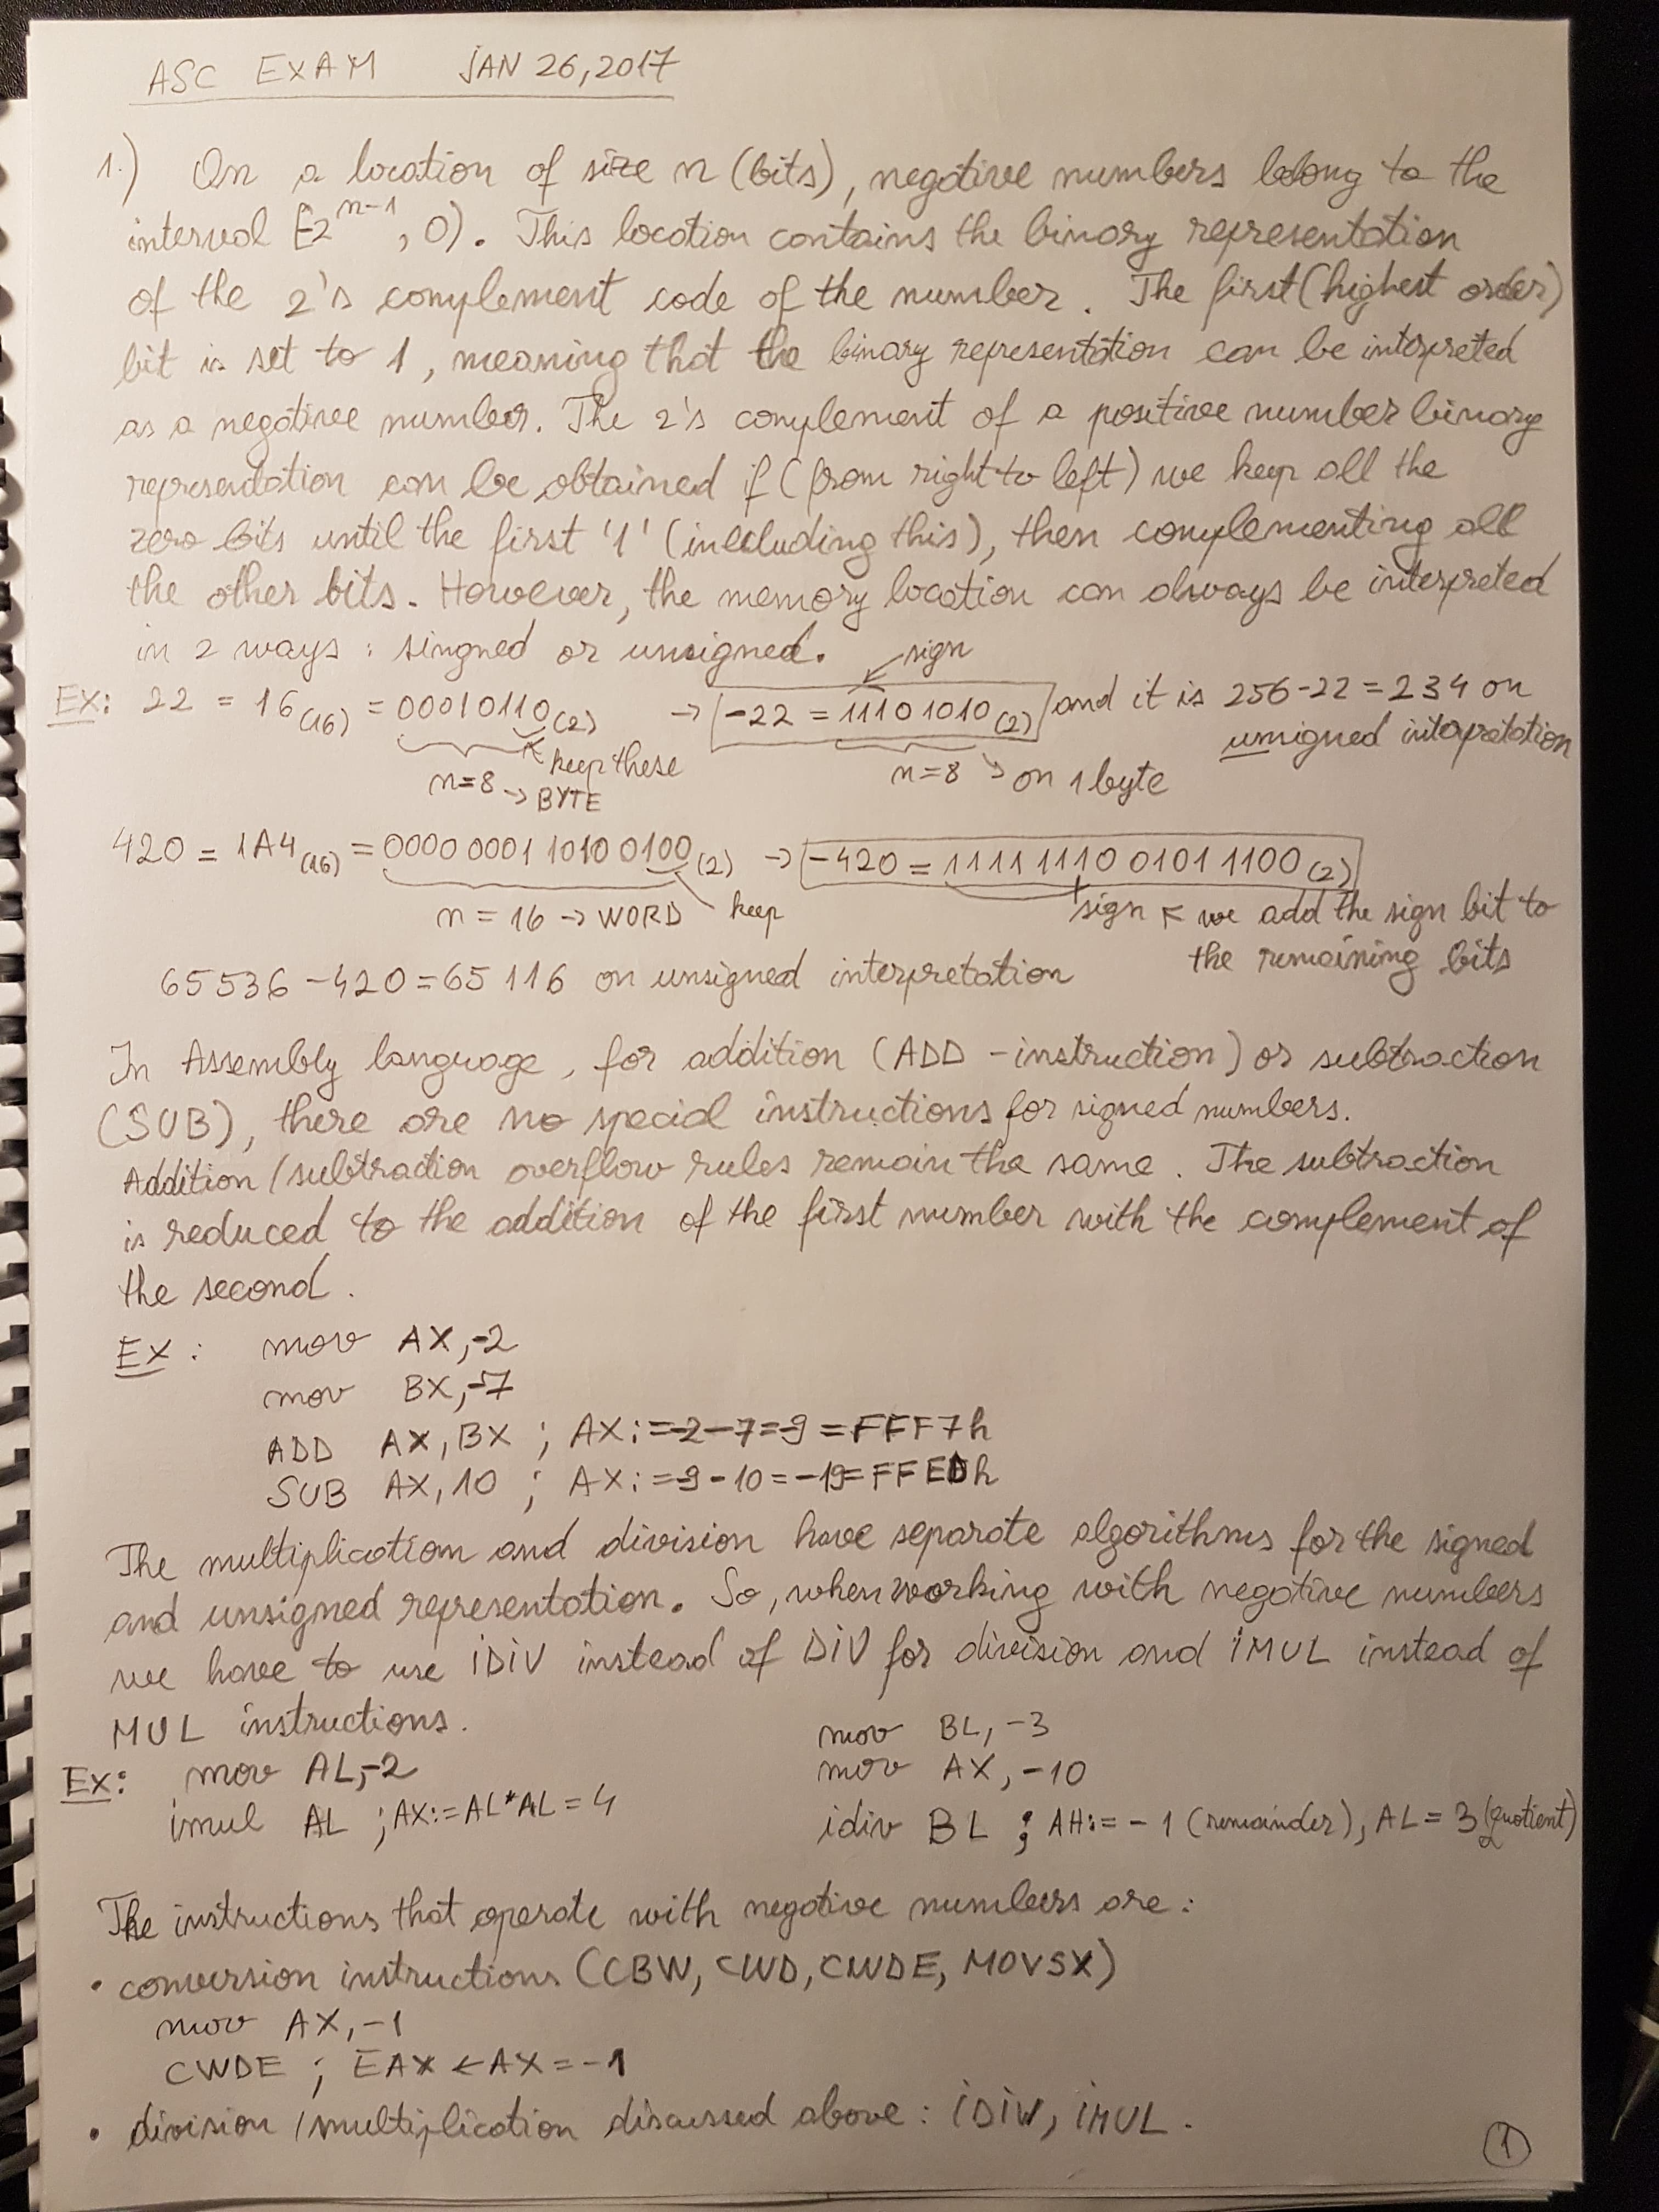 ASC EXAM JAN 26, 2017
1.) On a location of size n (bits), negative numbers belong to the
interval [-2^n-1, 0). This location contains the binary representation
of the 2's complement code of the number. The first (highest order)
bit is set to 1, meaning that the binary representation can be interpreted
as a negative number. The 2's complement of a positive number binary
representation can be obtained if (from right to left) we keep all the
zero bits until the first '1' (inlcluding this), then complementing all
the other bits. However, the memory location can always be interpreted
in 2 ways : singned or unsigned.
sign
Ex: 22 = 16(16) = 00010110(2) → -22 = 11101010(2) and it is 256-22=234 on
unsigned interpretation
keep these
n=8 → BYTE
n=8 → on 1 byte
420 = 1A4(16) = 0000 0001 1010 0100(2) → -420 = 1111 1110 0101 1100(2)
n = 16 → WORD keep
sign ← we add the sign bit to
the remaining bits
65536 - 420 = 65116 on unsigned interpretation
In Assembly language, for addition (ADD - instruction) or subtraction
(SUB), there are no special instructions for signed numbers.
Addition / subtraction overflow rules remain the same. The subtraction
is reduced to the addition of the first number with the complement of
the second.
Ex: mov AX,-2
mov BX,-7
ADD AX, BX ; AX:=-2-7=-9=FFF7h
SUB AX, 10 ; AX:=-9-10=-19=FFEDh
The multiplication and division have separate algorithms for the signed
and unsigned representation. So, when working with negative numbers
we have to use IDIV instead of DIV for division and IMUL instead of
MUL instructions.
Ex: mov AL,-2
imul AL ; AX:=AL*AL=4
mov BL, -3
mov AX, -10
idiv BL ; AH:= -1 (remainder), AL = 3 (quotient)
The instructions that operate with negative numbers are:
• conversion instructions (CBW, CWD, CWDE, MOVSX)
mov AX, -1
CWDE ; EAX ← AX = -1
• division / multiplication discussed above: IDIV, IMUL.
1